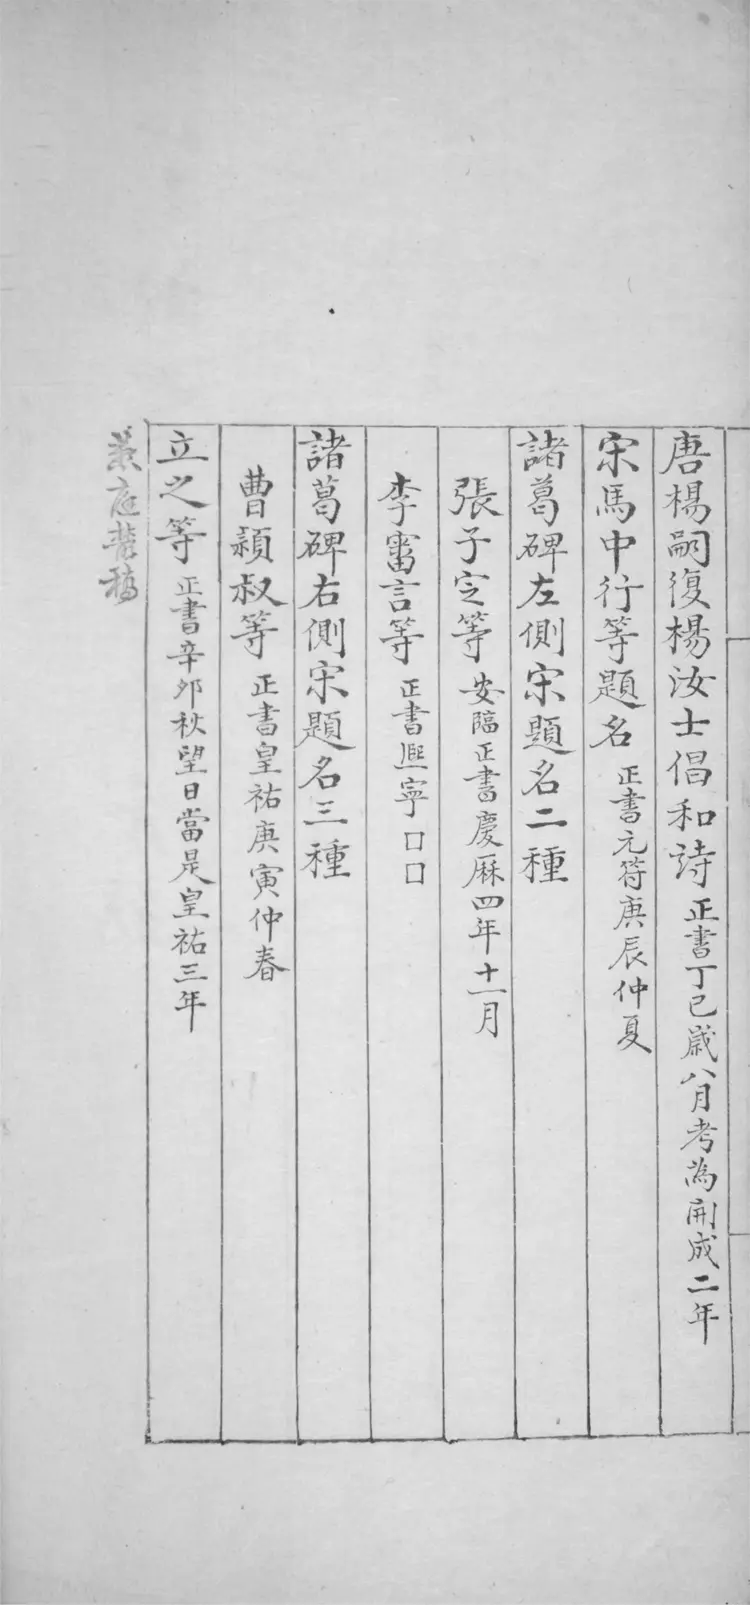 唐楊嗣復楊汝士倡和詩正書丁巳歲八月考為開成二年
宋馬中行等題名正書元符庚辰仲夏
諸葛碑左側宋題名二種
張子定等安臨正書慶厤四年十一月
李審言等正書熙寧□□
諸葛碑右側宋題名三種
曹穎叔等正書皇祐庚寅仲春
立之等正書辛卯秋望日當是皇祐三年